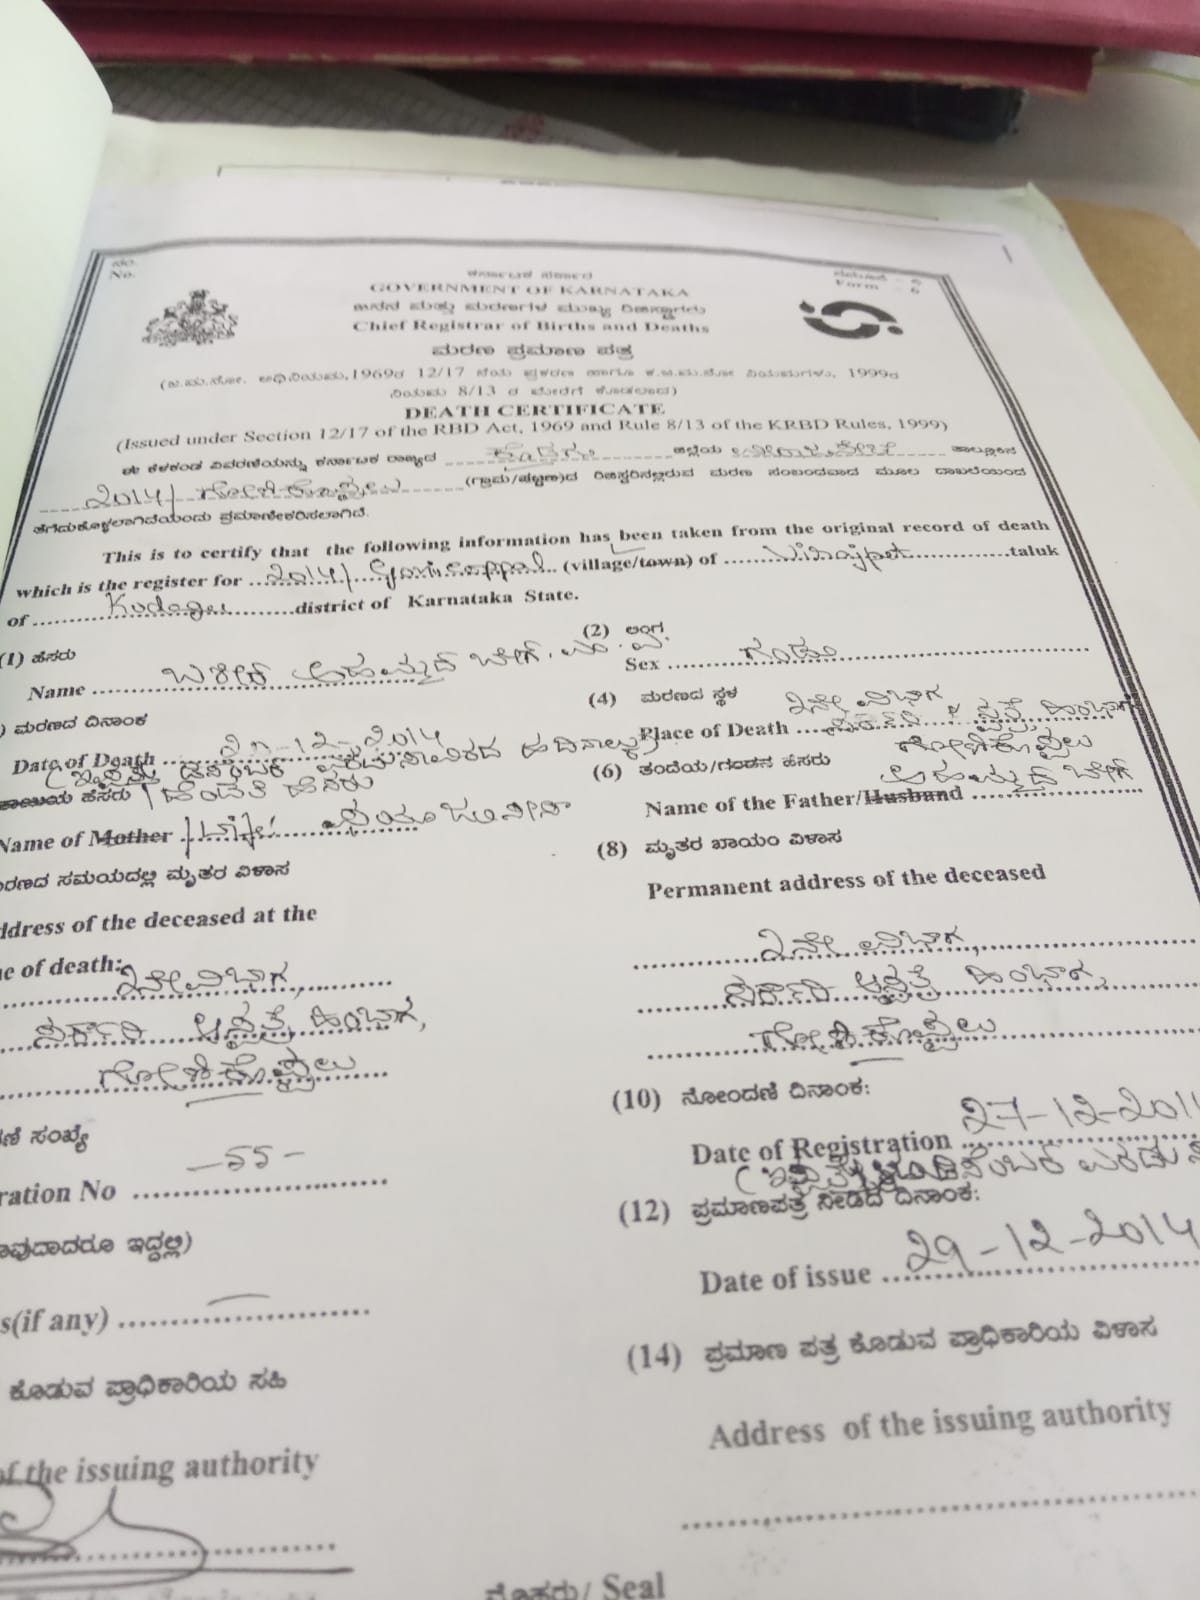 ನಂ.
No.
ಕರ್ನಾಟಕ ಸರ್ಕಾರ
GOVERNMENT OF KARNATAKA
ನಮೂನೆ - 6
Form - 6
ಜನನ ಮತ್ತು ಮರಣಗಳ ಮುಖ್ಯ ರಿಜಿಸ್ಟ್ರಾರರು
Chief Registrar of Births and Deaths
ಮರಣ ಪ್ರಮಾಣ ಪತ್ರ
(ಜ.ಮ.ನೋ. ಅಧಿನಿಯಮ,1969ರ 12/17 ನೆಯ ಪ್ರಕರಣ ಹಾಗೂ ಕ.ಜ.ಮ.ನೋ ನಿಯಮಗಳು, 1999ರ
ನಿಯಮ 8/13 ರ ಮೇರೆಗೆ ಕೊಡಲಾದ)
DEATH CERTIFICATE
(Issued under Section 12/17 of the RBD Act, 1969 and Rule 8/13 of the KRBD Rules, 1999)
ಈ ಕೆಳಕಂಡ ವಿವರಣೆಯನ್ನು ಕರ್ನಾಟಕ ರಾಜ್ಯದ ಕೊಡಗು ಜಿಲ್ಲೆಯ ವಿರಾಜಪೇಟೆ ತಾಲ್ಲೂಕಿನ
2014/ ಗೋಣಿಕೊಪ್ಪಲು (ಗ್ರಾಮ/ಪಟ್ಟಣ)ದ ರಿಜಿಸ್ಟರಿನಲ್ಲಿರುವ ಮರಣ ಸಂಬಂಧವಾದ ಮೂಲ ದಾಖಲೆಯಿಂದ
ತೆಗೆದುಕೊಳ್ಳಲಾಗಿದೆಯೆಂದು ಪ್ರಮಾಣೀಕರಿಸಲಾಗಿದೆ.
This is to certify that the following information has been taken from the original record of death
which is the register for 2014/ Gonicoppal (village/town) of Virajpet taluk
of Kodagu district of Karnataka State.
(1) ಹೆಸರು
Name ಬಶೀರ್ ಅಹಮ್ಮದ್ ಬೇಗ್. ಎಂ.ಎ.
(2) ಲಿಂಗ
Sex ಗಂಡು
) ಮರಣದ ದಿನಾಂಕ
Date of Death -12-2014
(4) ಮರಣದ ಸ್ಥಳ
Place of Death 2ನೇ ವಿಭಾಗ, ಸರ್ಕಾರಿ ಆಸ್ಪತ್ರೆ ಹಿಂಭಾಗ
ಗೋಣಿಕೊಪ್ಪಲು
ಡಿಸೆಂಬರ್ ಎರಡು ಸಾವಿರದ ಹದಿನಾಲ್ಕು)
ತಾಯಿಯ ಹೆಸರು / ಹೆಂಡತಿ ಹೆಸರು
Name of Mother /
(6) ತಂದೆಯ/ಗಂಡನ ಹೆಸರು
Name of the Father/Husband ಅಹಮ್ಮದ್ ಬೇಗ್
ರಣದ ಸಮಯದಲ್ಲಿ ಮೃತರ ವಿಳಾಸ
ddress of the deceased at the
e of death: 2ನೇ ವಿಭಾಗ,
ಸರ್ಕಾರಿ ಆಸ್ಪತ್ರೆ ಹಿಂಭಾಗ,
ಗೋಣಿಕೊಪ್ಪಲು
(8) ಮೃತರ ಖಾಯಂ ವಿಳಾಸ
Permanent address of the deceased
2ನೇ ವಿಭಾಗ,
ಸರ್ಕಾರಿ ಆಸ್ಪತ್ರೆ ಹಿಂಭಾಗ,
ಗೋಣಿಕೊಪ್ಪಲು
ಣಿ ಸಂಖ್ಯೆ
ration No -55-
(10) ನೋಂದಣಿ ದಿನಾಂಕ:
Date of Registration 27-12-201
ಡಿಸೆಂಬರ್ ಎರಡು ಸ
ಾವುದಾದರೂ ಇದ್ದಲ್ಲಿ)
s(if any)
(12) ಪ್ರಮಾಣಪತ್ರ ನೀಡಿದ ದಿನಾಂಕ:
Date of issue 29-12-2014
ಕೊಡುವ ಪ್ರಾಧಿಕಾರಿಯ ಸಹಿ
of the issuing authority
(14) ಪ್ರಮಾಣ ಪತ್ರ ಕೊಡುವ ಪ್ರಾಧಿಕಾರಿಯ ವಿಳಾಸ
Address of the issuing authority
ಮೊಹರು/ Seal